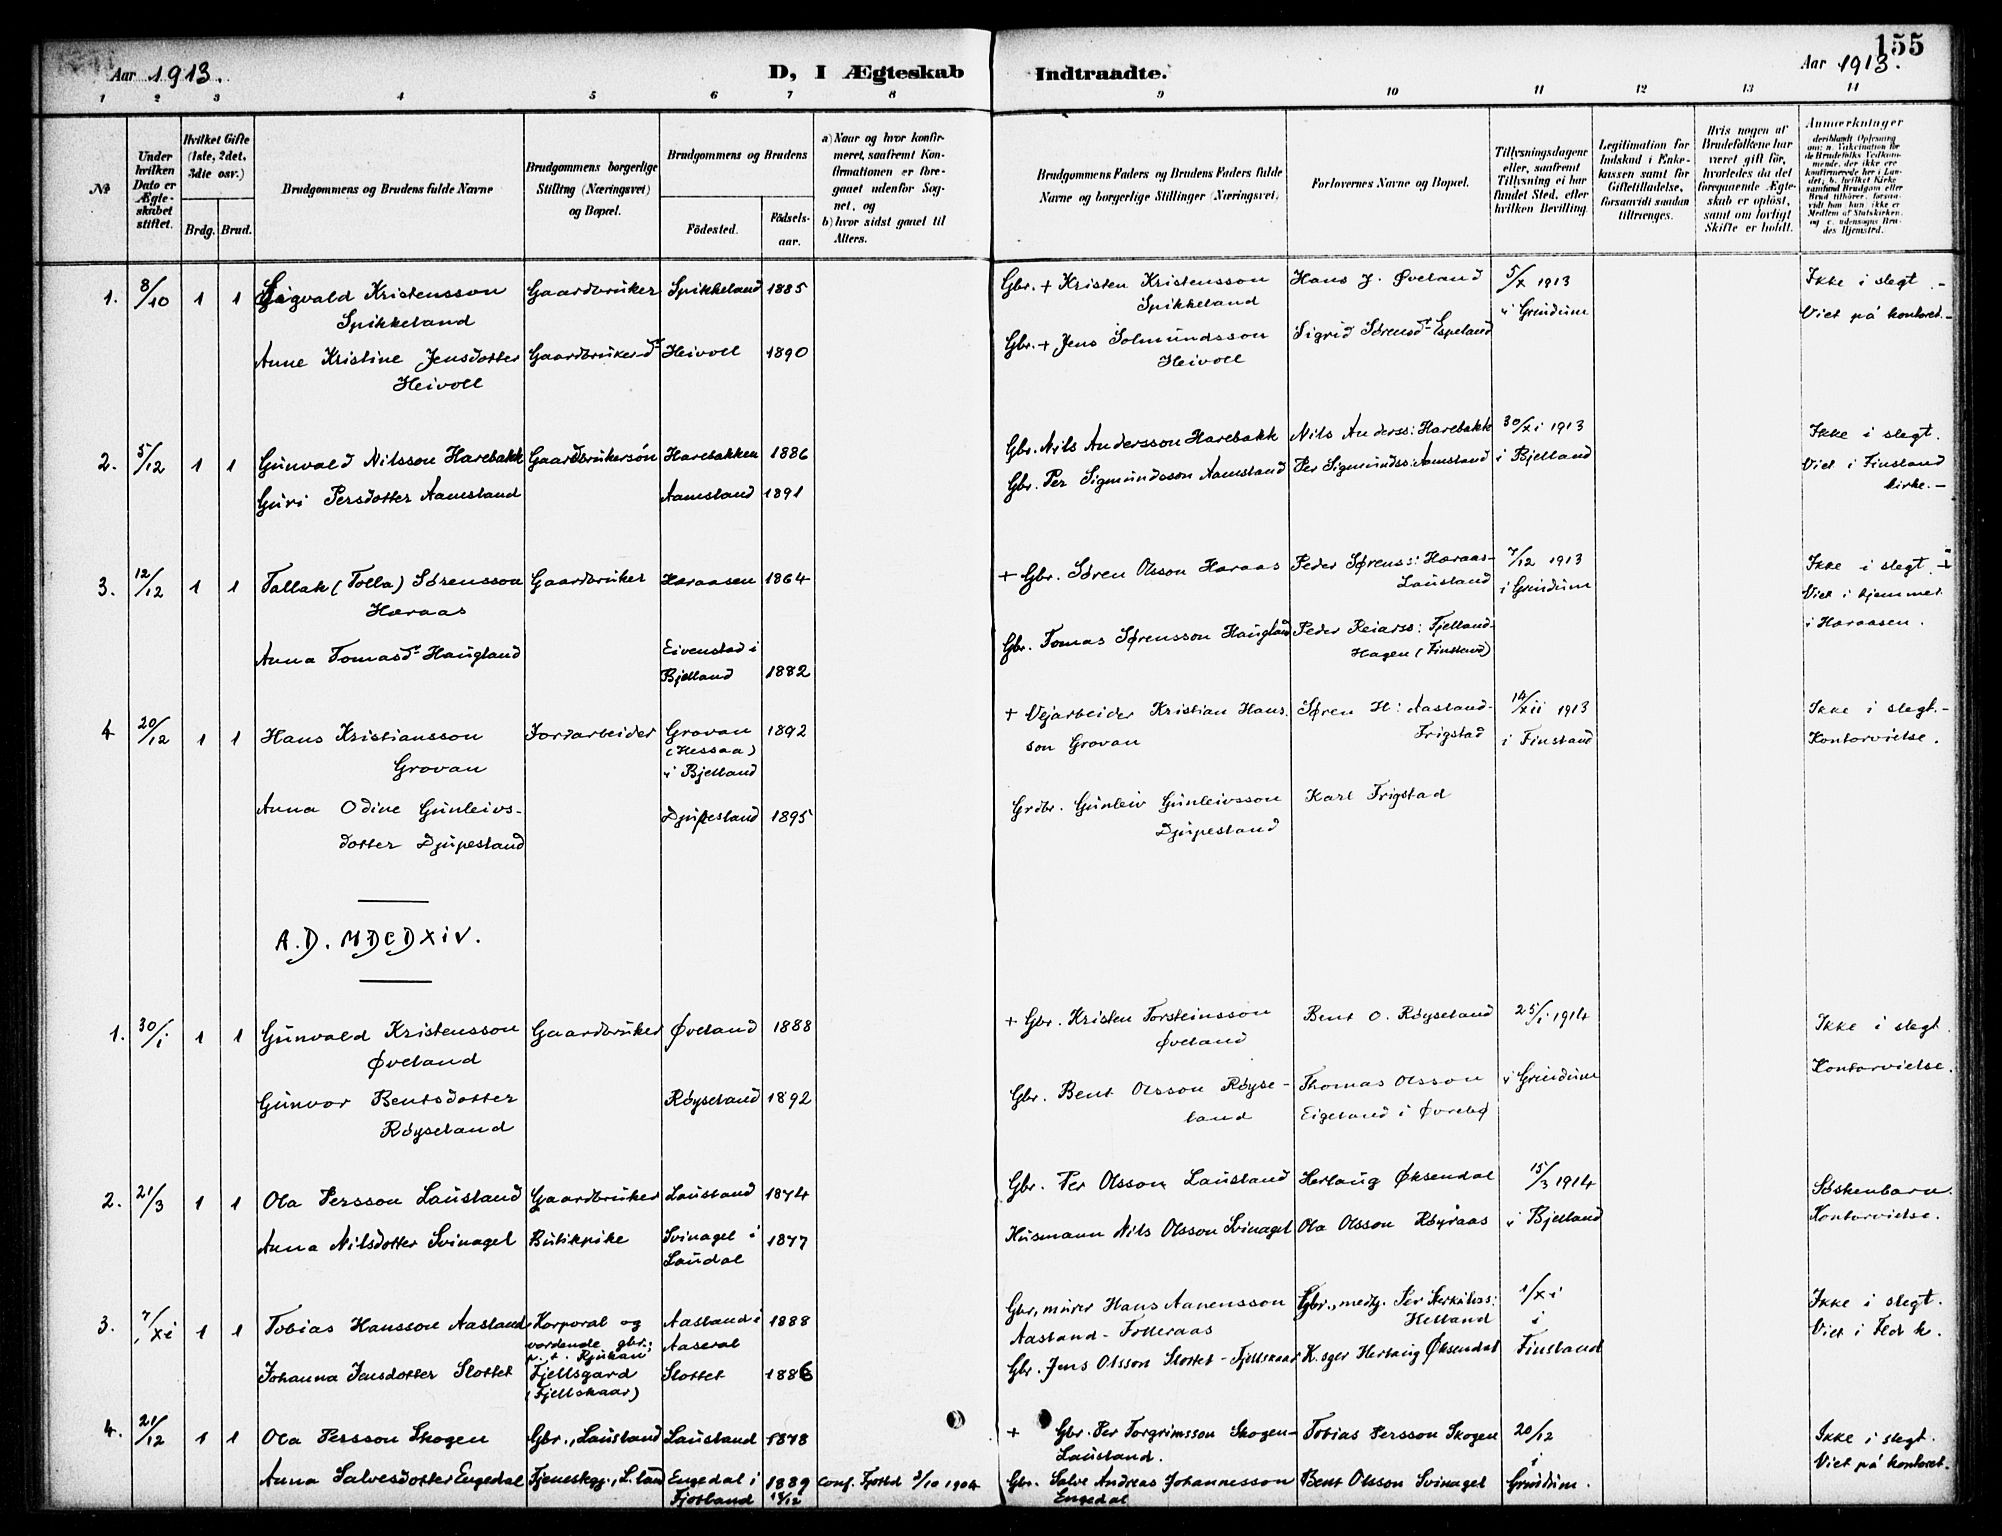 155
Aar 1913.
D, I Ægteskab Indtraadte.
Aar 1913.
1 2 3 4 5 6 7 8 9 10 11 12 13 14
№
Under hvilken Dato er Ægteskabet stiftet.
Hvilket Gifte (1ste, 2det, 3die osv.)
Brdg. Brud.
Brudgommens og Brudens fulde Navne
Brudgommens borgerlige Stilling (Næringsvei) og Bopæl.
Brudgommens og Brudens
Fødested. Fødselsaar.
a) Naar og hvor konfirmeret, saafremt Konfirmationen er foregaaet udenfor Sognet, og
b) hvor sidst gaaet til Alters.
Brudgommens Faders og Brudens Faders fulde Navne og borgerlige Stillinger (Næringsvei).
Forlovernes Navne og Bopæl.
Tillysningsdagene eller, saafremt Tillysning ei har fundet Sted, efter hvilken Bevilling.
Legitimation for Indskud i Enkekassen samt for Giftetilladelse, forsaavidt saadan tiltrænges.
Hvis nogen af Brudefolkene har været gift før, hvorledes da det foregaaende Ægteskab er opløst, samt om lovligt Skifte er holdt.
Anmærkninger
1. 8/10 1 1 Sigvald Kristensson Gaardbruker Spikkeland 1885 Gbr. + Kristen Kristensson Hans J. Øveland 5/X 1913 Ikke i slegt.-
Spikkeland Spikkeland i Grindum Viet på kontoret.-
Anne Kristine Jensdotter Gaardbrukerdr Heivoll 1890 Gbr. + Jens Solmundsson Sigrid Sørensdr Espeland
Heivoll Heivoll
2. 5/12 1 1 Gunvald Nilsson Harebakk Gaardbrukersøn Harebakken 1886 Gbr. Nils Andersson Harebakk Nils Anderss: Harebakk 30/xi 1913 Ikke i slegt.
Guri Persdotter Aamstand Aamstand 1891 Gbr. Per Sigmundsson Aamstand Per Sigmundss: Aamstand i Bjelland Viet i Finsland
kirke.-
3. 12/12 1 1 Tallak (Tolla) Sørensson Gaardbruker Haraasen 1864 + Gbr. Søren Olsson Haraas Peder Sørenss: Haraas- 7/12 1913 Ikke i slegt.
Haraas Lausland i Grindum Viet i hjemmet
Anna Tomasdr Haugland Eivenstad i Gbr. Tomas Sørensson Haugland Peder Reiarss: Fjelland- i Haraasen.
Bjelland 1882 Hagen (Finsland)
4 20/12 1 1 Hans Kristiansson Jordarbeider Grovan 1892 + Vejarbeider Kristian Hans- Søren H: Aasland- 14/xii 1913 Ikke i slegt.-
Grovan (Hessaa) son Grovan Frigstad i Finsland Kontorvielse.
i Bjelland
Anna Odine Gunleivs- Djupesland 1895 Grdbr. Gunleiv Gunleivsson Karl Frigstad
dotter Djupesland Djupesland
A.D. MDCDXiV.
1. 30/i 1 1 Gunvald Kristensson Gaardbruker Øveland 1888 + Gbr. Kristen Torsteinsson Bent O. Røyseland 25/i 1914 Ikke i slegt.
Øveland Øveland
Gunvor Bentsdotter Røyseland 1892 Gbr. Bent Olsson Røyse- Thomas Olsson i Grindum Kontorvielse.
Røyseland land Eigeland i Øvrebø
2. 21/3 1 1 Ola Persson Lausland Gaardbruker Lausland 1874 Gbr. Per Olsson Lausland Herlaug Øksendal 15/3 1914 Søskenbarn.
Anna Nilsdotter Svinagel Butikpike Svinagel i 1877 Husmann Nils Olsson Svinagel Ola Olsson Røyraas i Bjelland Kontorvielse.
Laudal
3. 7/xi 1 1 Tobias Hansson Aasland Korporal og Aasland i 1888 Gbr., murer Hans Aanensson Gbr., medhj. Per Herkulss: 1/xi Ikke i slegt.
vordende gbr.; Aaseral Aasland- Helland i Viet i
p.t. Rjukan
Johanna Jensdotter Slottet Fjellsgard Slottet 1886 Gbr. Jens Olsson Slottet - Fjellskaar K.sger Herlaug Øksendal Finsland
(Fjellskaar)
4. 21/12 1 1 Ola Persson Skogen Gbr., Lausland Lausland 1878 + Gbr. Per Torgrimsson Skogen- Tobias Persson Skogen 20/12 Ikke i slegt.
Lausland. i Viet på kontoret.
Anna Salvesdotter Engedal Engedal i 1889 Conf. 2/10 1904 Gbr. Salve Andreas Johannesson Bent Olsson Svinagel Grindum.
Fjotland 18/12 Engedal